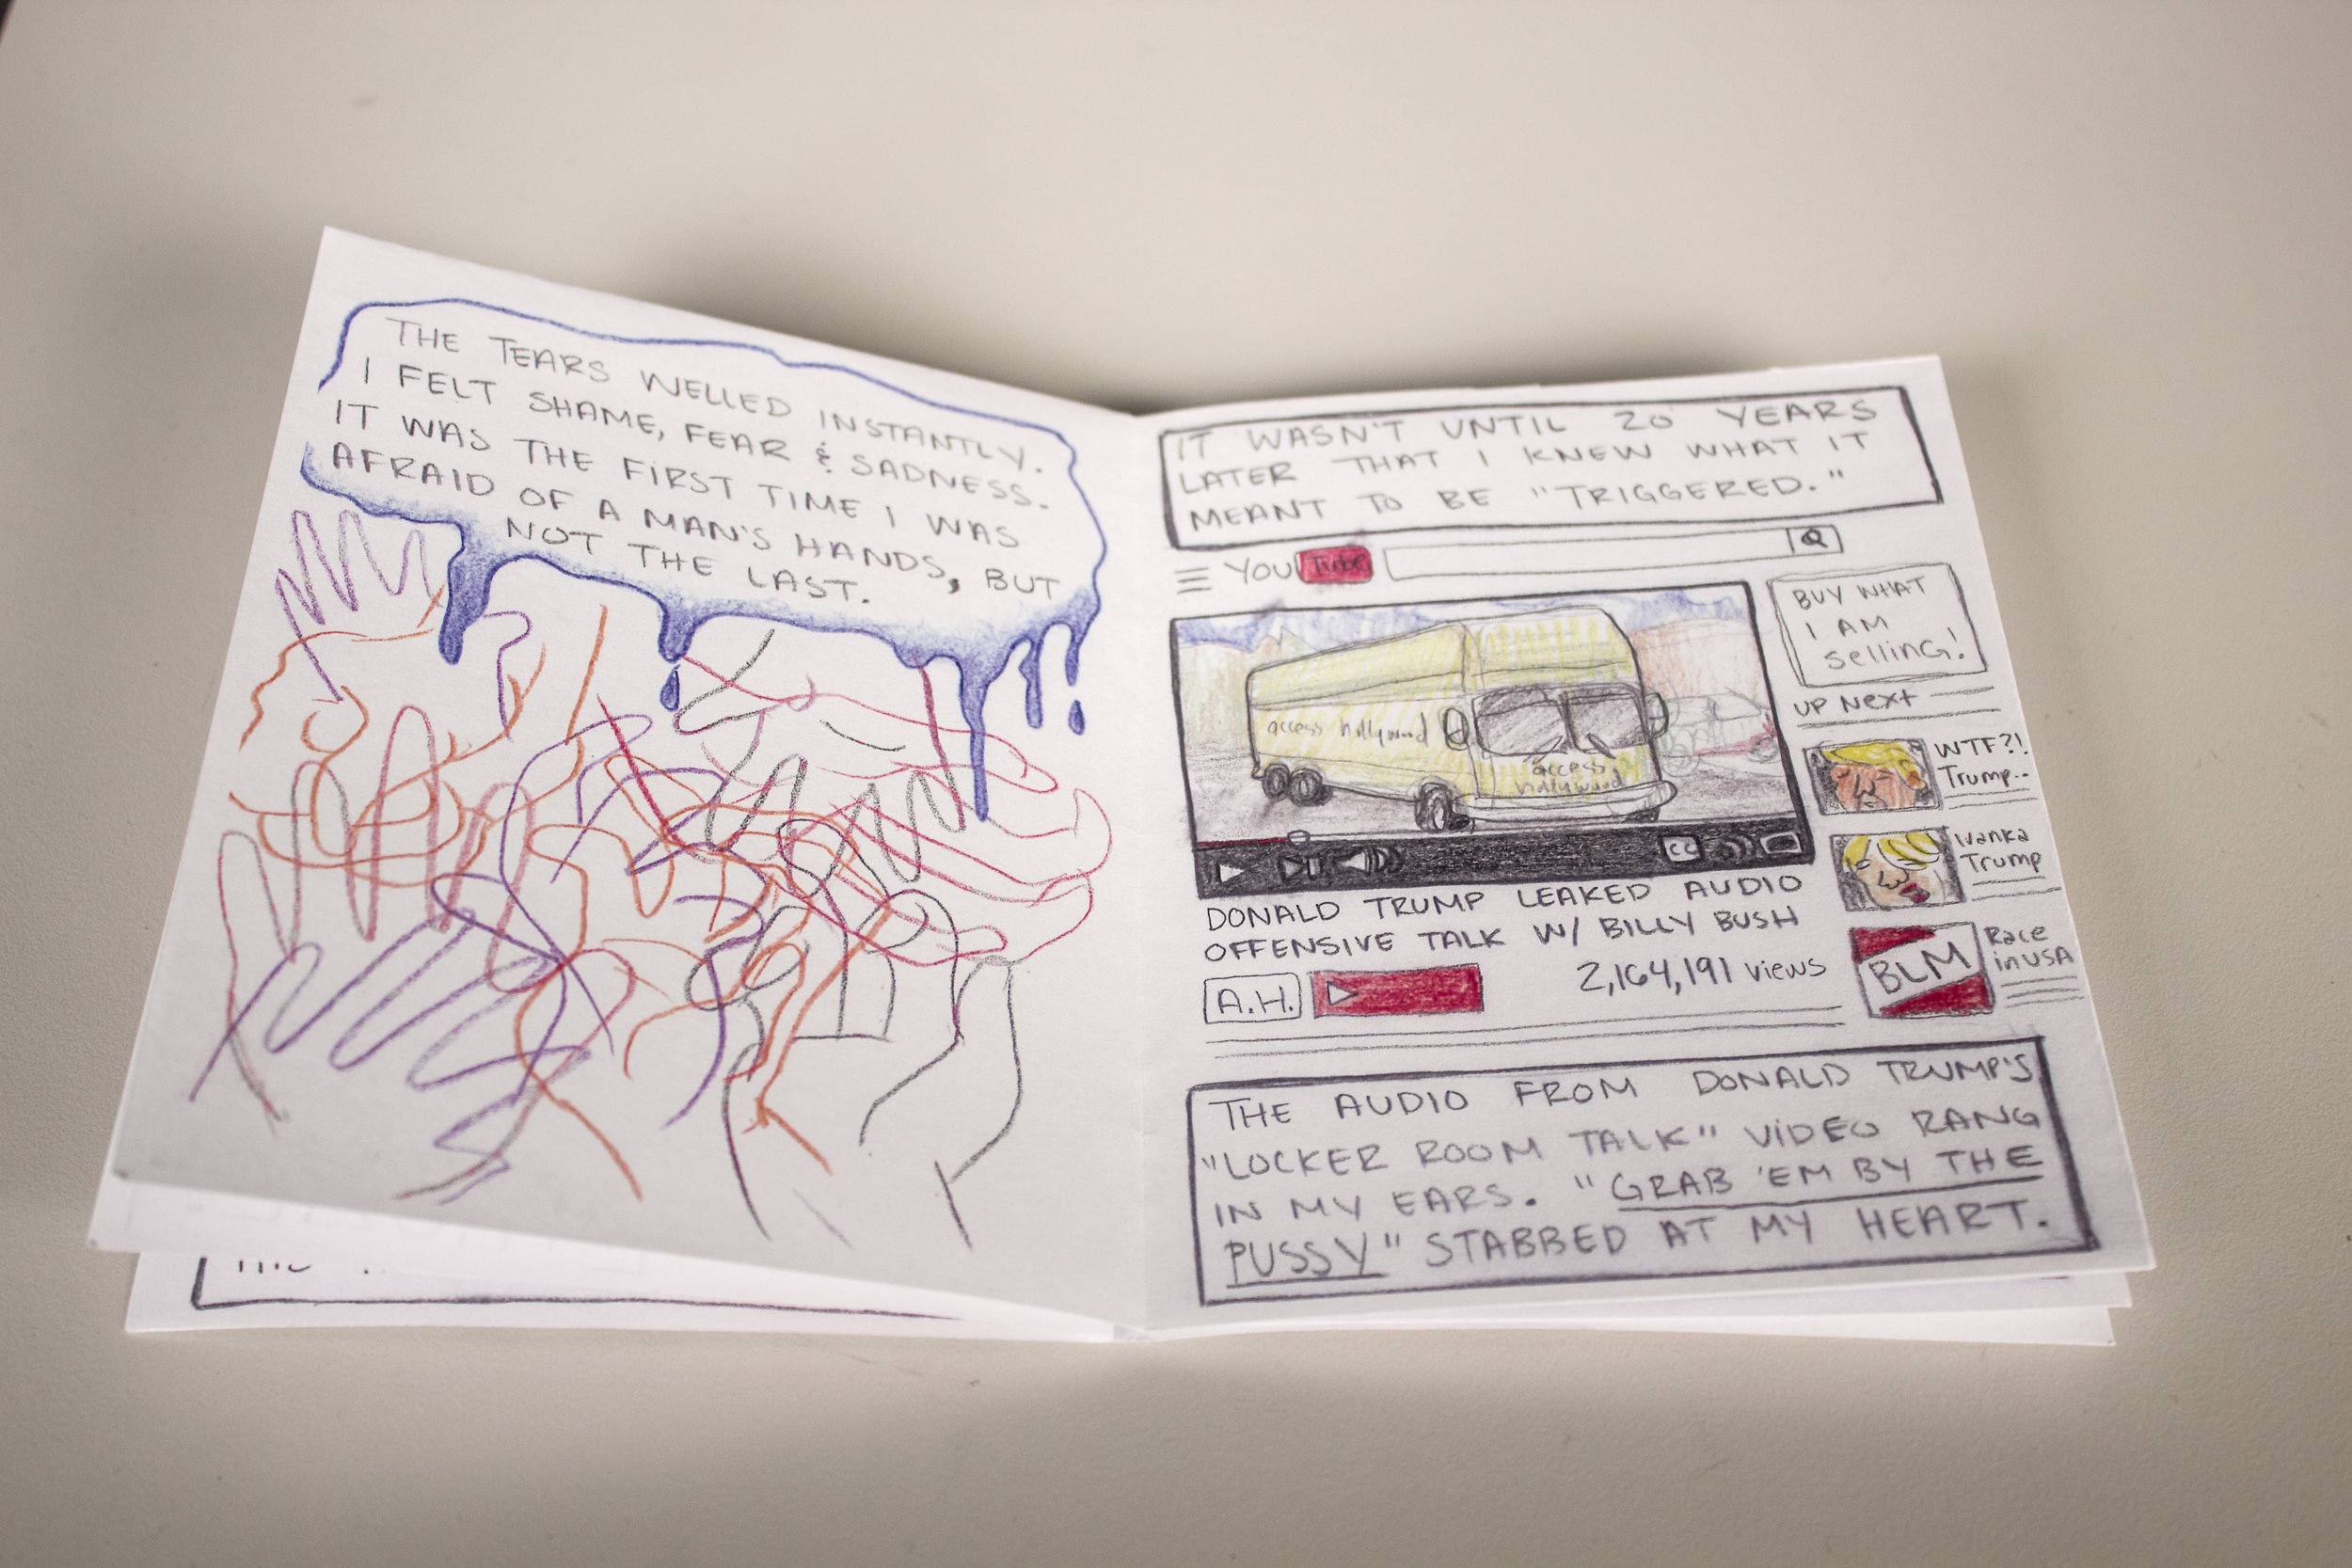 THE TEARS WELLED INSTANTLY.
I FELT SHAME, FEAR & SADNESS.
IT WAS THE FIRST TIME I WAS
AFRAID OF A MAN'S HANDS, BUT
NOT THE LAST.
IT WASN'T UNTIL 20 YEARS
LATER THAT I KNEW WHAT IT
MEANT TO BE "TRIGGERED."
YOU Tube
BUY WHAT
I AM
SELLING!
UP NEXT
access hollywood
access
hollywood
WTF?!
Trump..
Ivanka
Trump
CC
DONALD TRUMP LEAKED AUDIO
OFFENSIVE TALK W/ BILLY BUSH
2,164,191 views
A.H.
BLM
Race
in USA
THE AUDIO FROM DONALD TRUMP'S
"LOCKER ROOM TALK" VIDEO RANG
IN MY EARS. "GRAB 'EM BY THE
PUSSY" STABBED AT MY HEART.